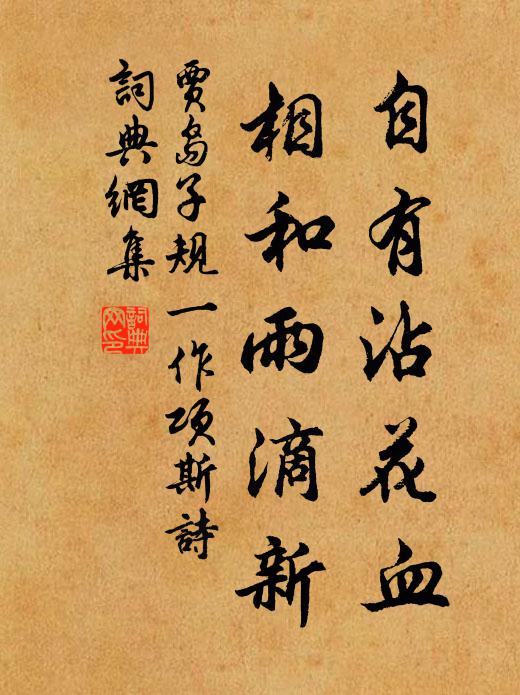 自有沾花血
相和雨滴新
賈島子規一作項斯詩
詞典網集
詞典網印